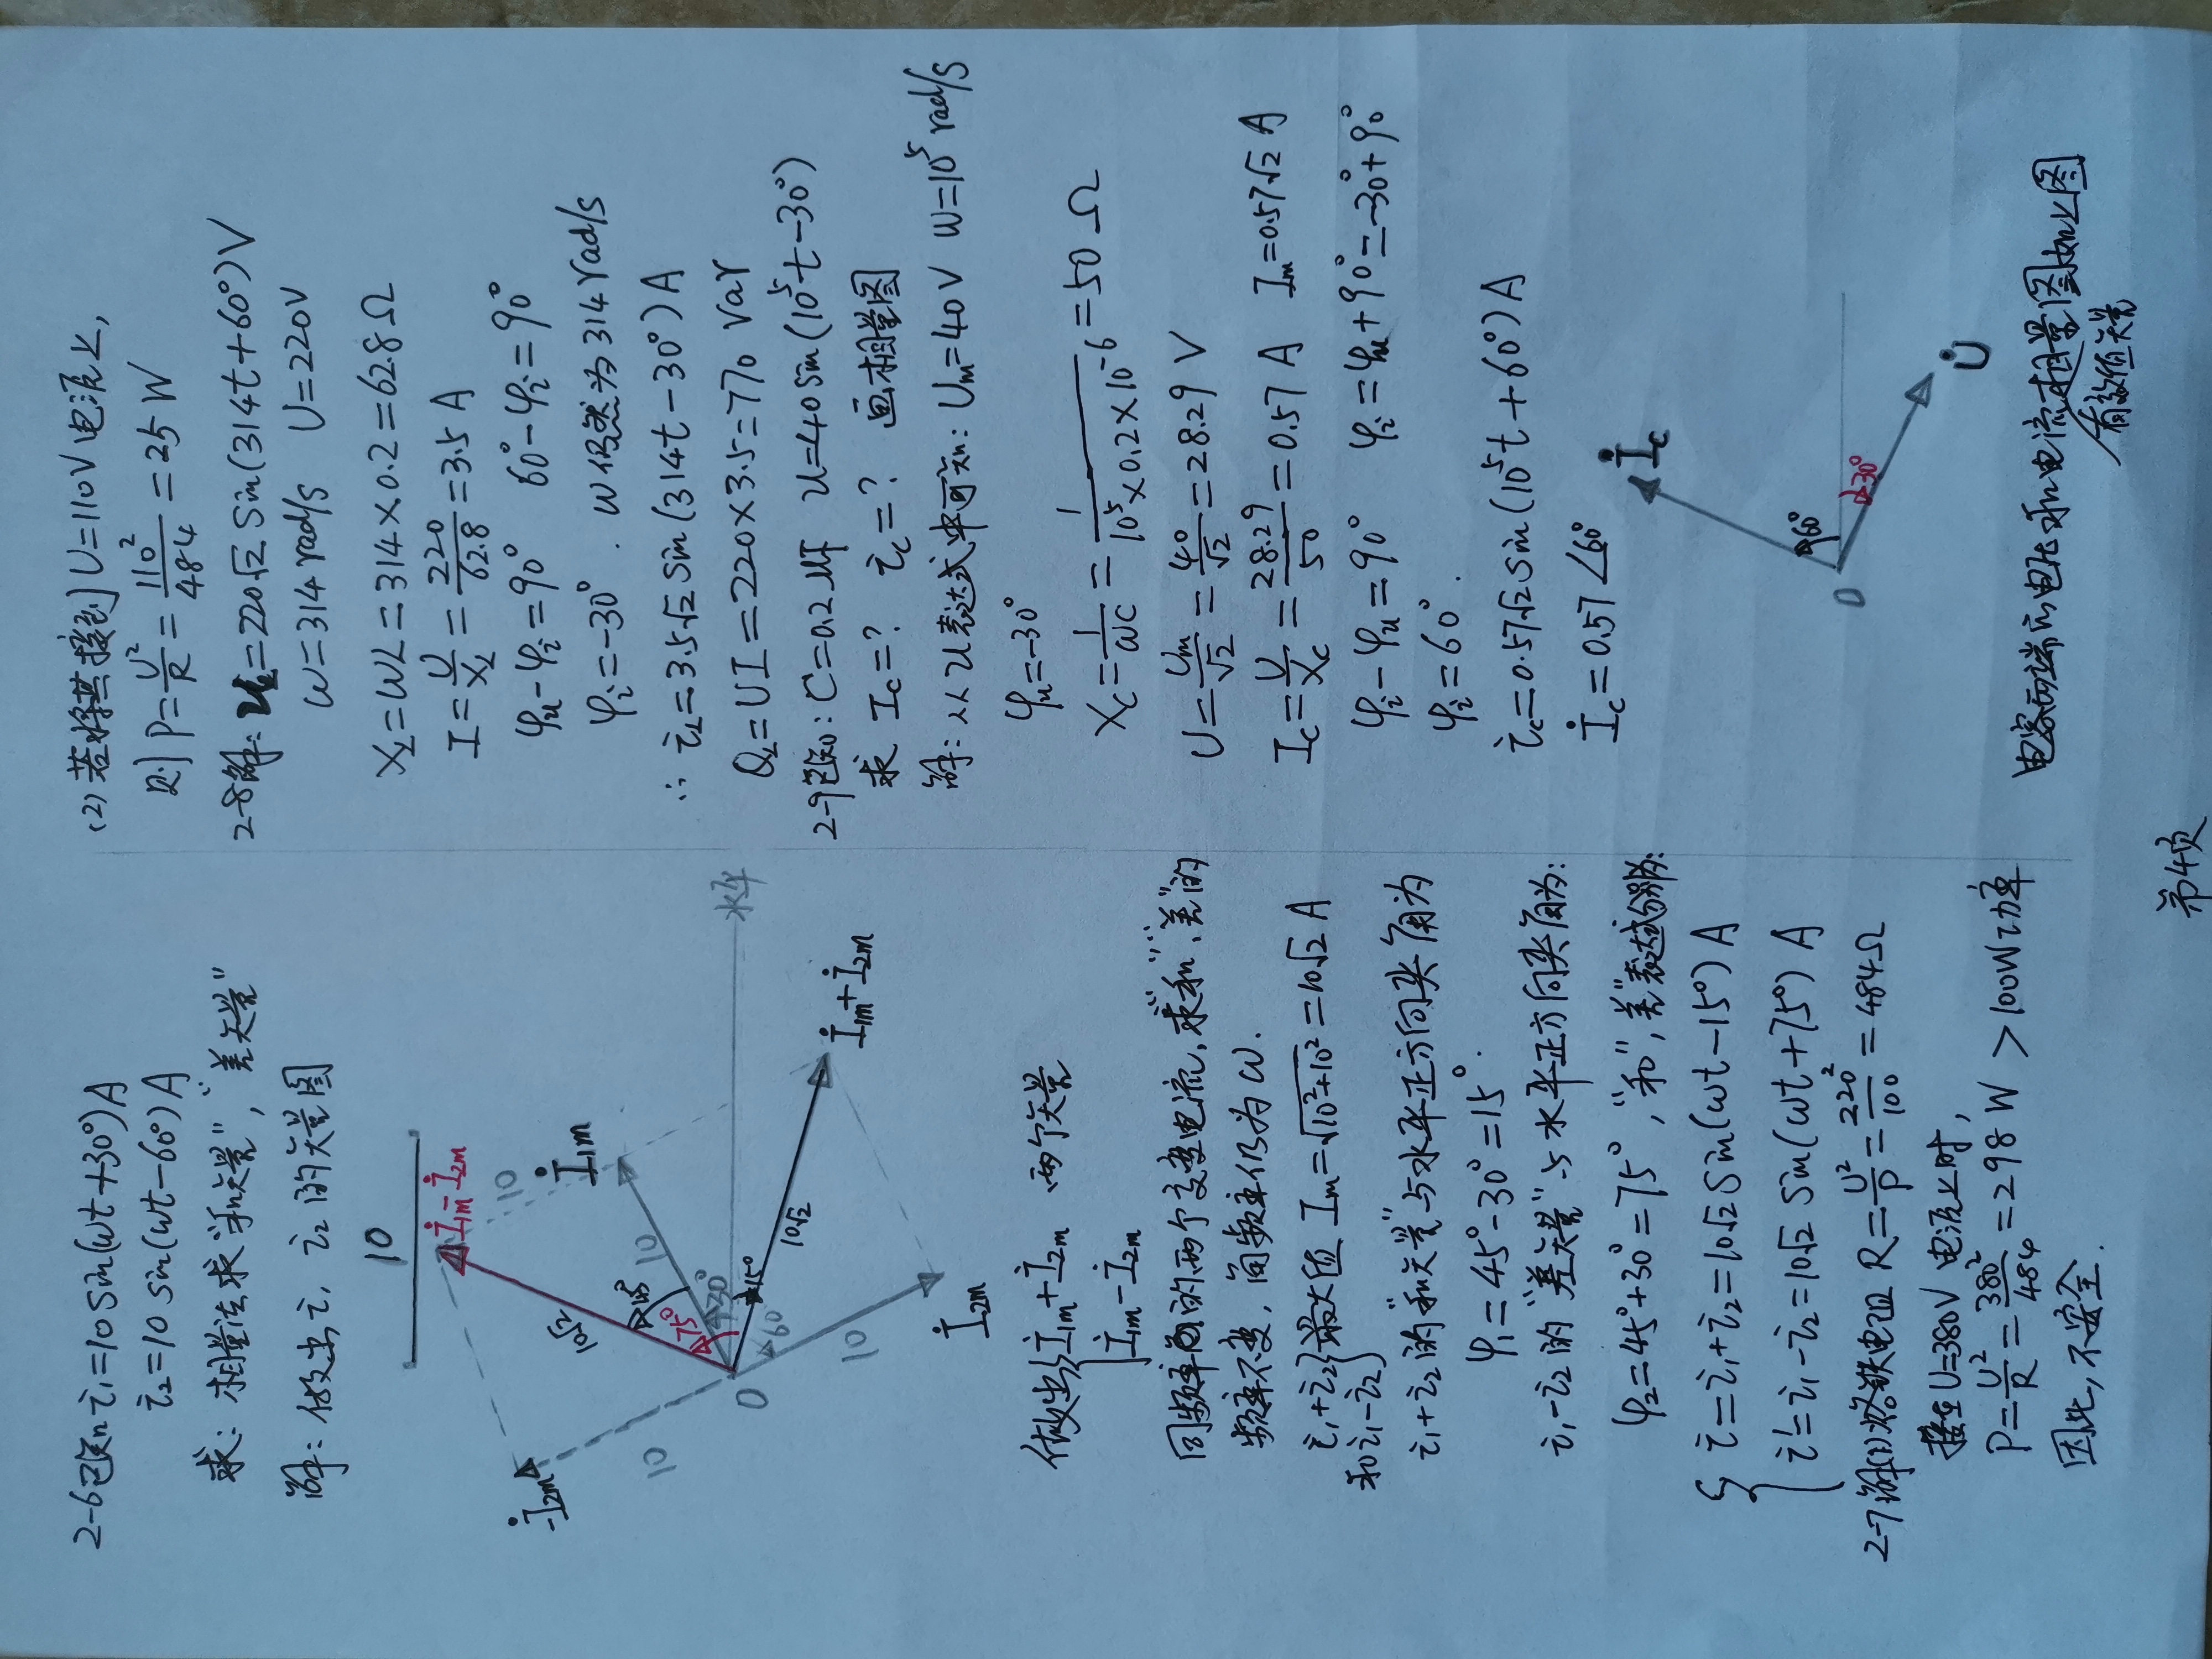 2-6已知 i₁=10sin(ωt+30°)A
i₂=10sin(ωt-60°)A
求:相量法求"和矢量","差矢量"
解:做出 i₁ i₂的矢量图
10
İ₁m-İ₂m
10
İ₁m
-İ₂m
10√2
45°
10
75°
30°
水平
O
15°
60°
10√2
10
10
İ₁m+İ₂m
İ₂m
做出 { İ₁m+İ₂m
İ₁m-İ₂m 两个矢量
同频率的两个交变电流,求"和"、"差"的
频率不变,角频率仍为ω.
i₁+i₂
和 i₁-i₂ } 最大值 Im=√10²+10²=10√2 A
i₁+i₂的"和矢量"与水平正方向夹角为
φ₁=45°-30°=15°.
i₁-i₂的"差矢量"与水平正方向夹角为:
φ₂=45°+30°=75°,"和","差"表达式分别为:
{ i=i₁+i₂=10√2 sin(ωt-15°) A
i'=i₁-i₂=10√2 sin(ωt+75°) A
2-7解(1)烙铁电阻 R=U²/P=220²/100=484Ω
接在U=380V电源上时,
P=U²/R=380²/484=298W >100W功率
因此,不安全.
(2)若将其接到U=110V电源上,
则P=U²/R=110²/484=25W
2-8解:u=220√2 sin(314t+60°)V
ω=314rad/s U=220V
X_L=ωL=314×0.2=62.8Ω
I=U/X_L=220/62.8=3.5A
φu-φi=90° 60°-φi=90°
φi=-30°. ω仍然为314rad/s
∴ i_L=3.5√2 sin(314t-30°)A
Q_L=UI=220×3.5=770 Var
2-9已知:C=0.2μf u=40sin(10⁵t-30°)
求 Ic=? ic=? 画相量图
解:从u表达式中可知:Um=40V ω=10⁵rad/s
φu=-30°
Xc=1/ωC=1/10⁵×0.2×10⁻⁶=50Ω
U=Um/√2=40/√2=28.29 V
Ic=U/Xc=28.29/50=0.57 A Im=0.57√2 A
φi-φu=90° φi=φu+90°=-30°+90°
φi=60°.
ic=0.57√2 sin(10⁵t+60°)A
İc=0.57∠60°
İc
60°
O
-30°
U̇
电容两端的电压和电流相量图如上图
有效值矢量
第4页